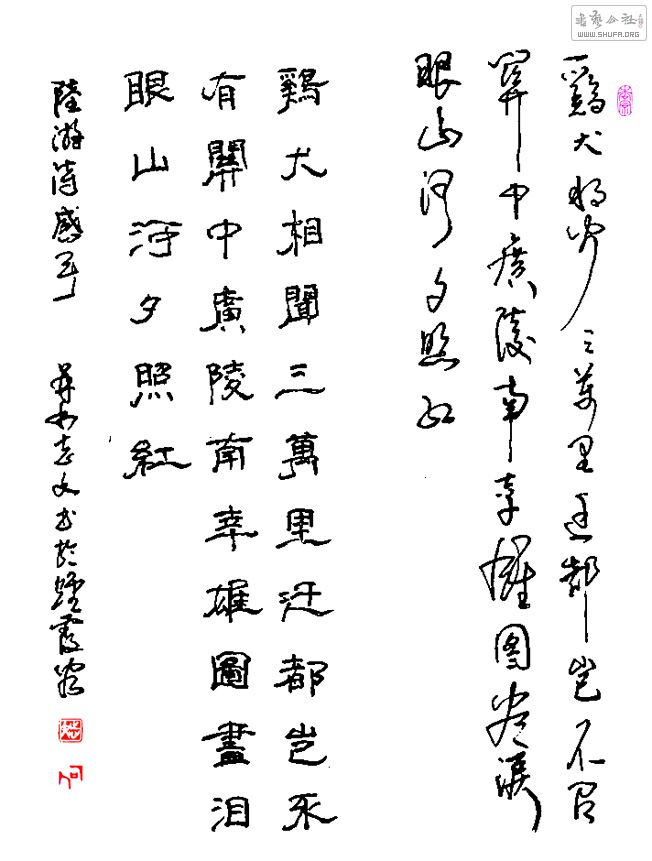 書藝公社
WWW.SHUFA.ORG
鷄犬相聞三萬里迁都岂不有
關中廣陵南幸雄圖盡淚
眼山河夕照紅
鷄犬相聞三萬里迁都岂不
有關中廣陵南幸雄圖盡泪
眼山河夕照紅
陸游詩感事 志文书於烟霞